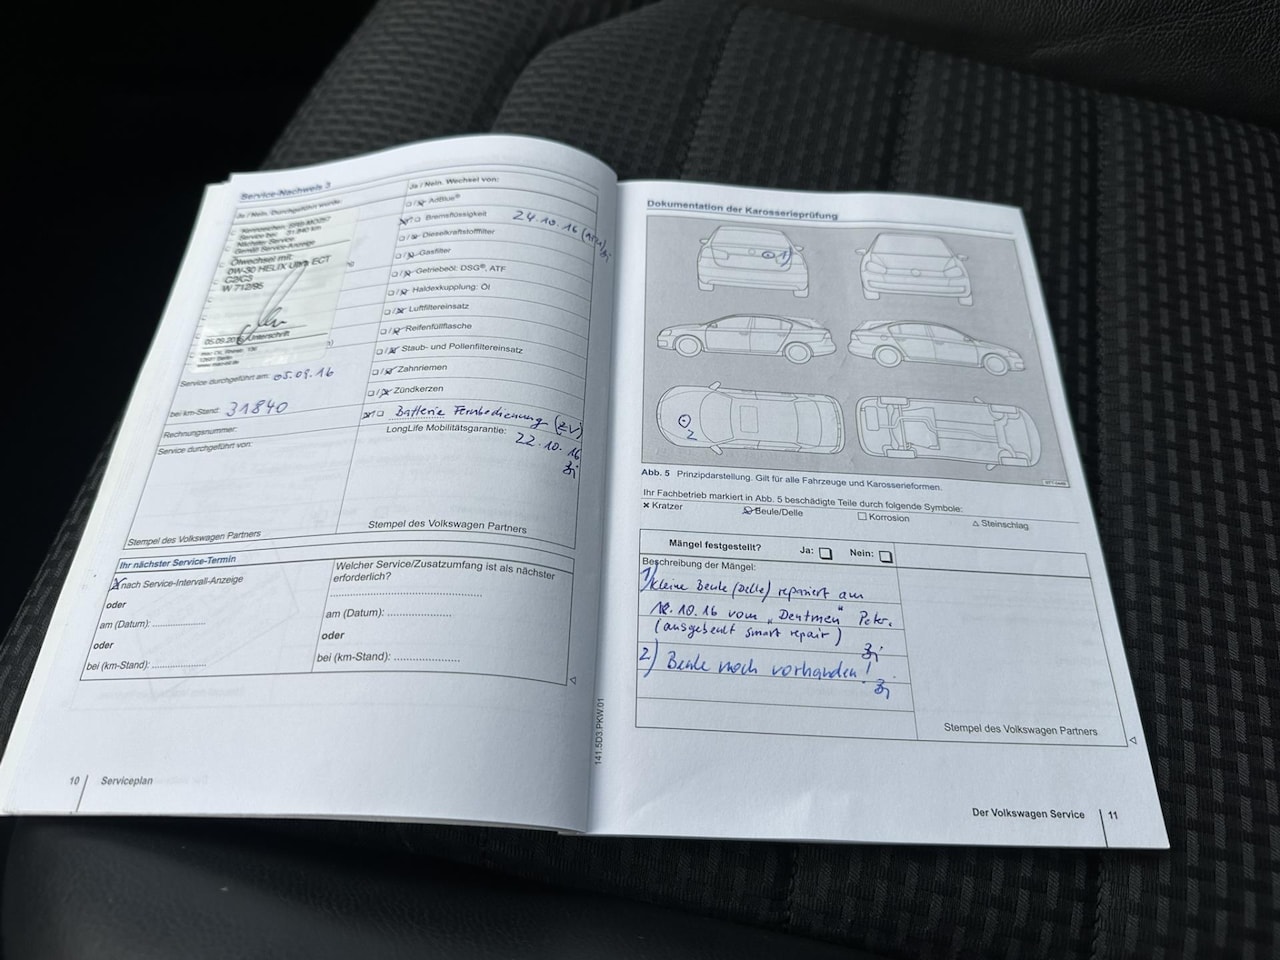 Service-Nachweis 3
Ja / Nein, Durchgeführt wurde:
Service bei: 31.840 km
Nächster Service
Gemäß Service-Anzeige
Ölwechsel mit:
0W-30 HELIX Ultra ECT
C2/C3
W 712/95
05.09.20 Unterschrift
Service durchgeführt am: 05.09.16
bei km-Stand: 31840
Rechnungsnummer:
Service durchgeführt von:
Stempel des Volkswagen Partners
Ja / Nein, Wechsel von:
AdBlue®
Bremsflüssigkeit 24.10.16
Dieselkraftstofffilter
Gasfilter
Getriebeöl: DSG®, ATF
Haldexkupplung: Öl
Luftfiltereinsatz
Reifenfüllflasche
Staub- und Pollenfiltereinsatz
Zahnriemen
Zündkerzen
Batterie Fernbedienung (ZV)
LongLife Mobilitätsgarantie: 22.10.16
Stempel des Volkswagen Partners
Ihr nächster Service-Termin
nach Service-Intervall-Anzeige
oder
am (Datum): ....................
oder
bei (km-Stand): ....................
Welcher Service/Zusatzumfang ist als nächster
erforderlich?
am (Datum): ....................
oder
bei (km-Stand): ....................
10 Serviceplan
141.5D3.PKW.01
Dokumentation der Karosserieprüfung
1)
2
Abb. 5 Prinzipdarstellung. Gilt für alle Fahrzeuge und Karosserieformen.
Ihr Fachbetrieb markiert in Abb. 5 beschädigte Teile durch folgende Symbole:
Kratzer Beule/Delle Korrosion Steinschlag
Mängel festgestellt? Ja: Nein:
Beschreibung der Mängel:
1) kleine Beule (Delle) repariert am
18.10.16 vom „Dentmen" Peter.
(ausgebeult smart repair)
2) Beule noch vorhanden!
Stempel des Volkswagen Partners
Der Volkswagen Service 11